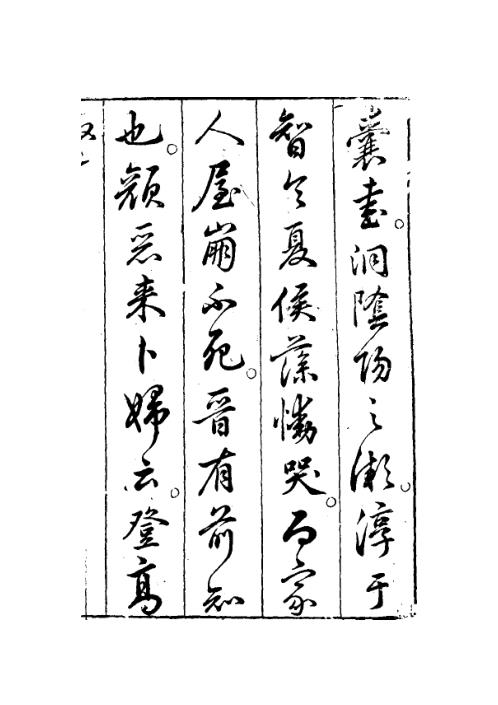 囊書。洞陰陽之。淳于
智令夏侯藻慟哭。而家
人屋崩不死。晉有前知
也。顏惡来卜婦云。登高